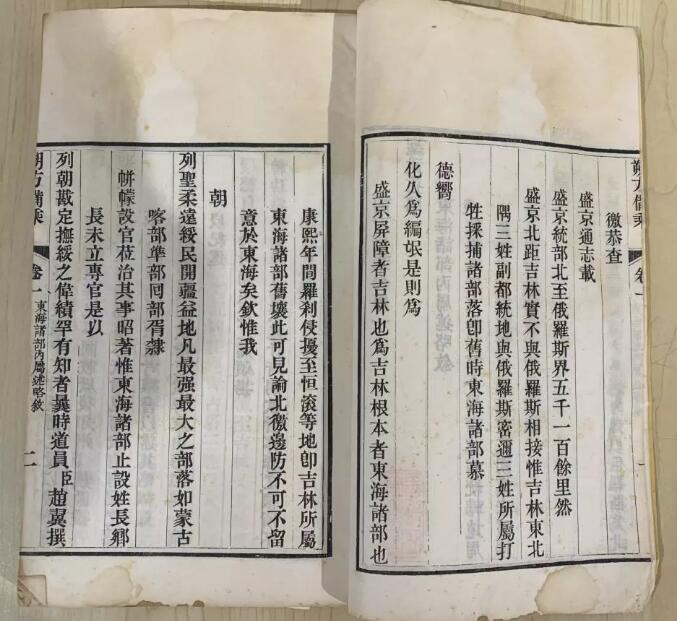 朔方備乘 卷一 一
徼恭查
盛京通志載
盛京統部北至俄羅斯界五千一百餘里然
盛京北距吉林實不與俄羅斯相接惟吉林東北
隅三姓副都統地與俄羅斯密邇三姓所屬打
牲採捕諸部落卽舊時東海諸部慕
德嚮
化久爲編氓是則爲
盛京屏障者吉林也爲吉林根本者東海諸部也
康熙年間羅剎侵擾至恒滾等地卽吉林所屬
東海諸部舊壤此可見論北徼邊防不可不留
意於東海矣欽惟我
朝
列聖柔遠綏民開疆益地凡最强最大之部落如蒙古
喀部準部囘部胥隸
帡幪設官莅治其事昭著惟東海諸部止設姓長鄉
長未立專官是以
列朝戡定撫綏之偉績罕有知者曩時道員臣趙翼撰
朔方備乘 卷一 東海諸部內屬述略敘 二